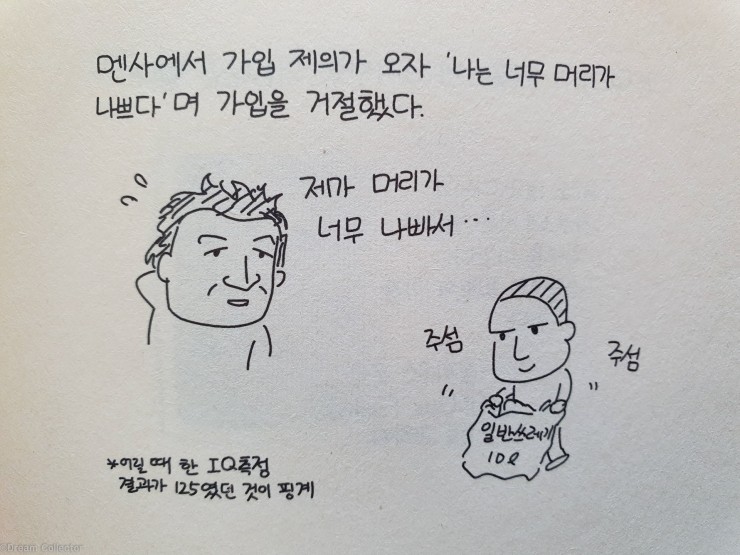 멘사에서 가입 제의가 오자 '나는 너무 머리가
나쁘다'며 가입을 거절했다.
저가 머리가
너무 나빠서...
주섬
주섬
일반쓰레기
10ℓ
*어릴 때 한 IQ측정
결과가 125였던 것이 핑계
©Dream Collector